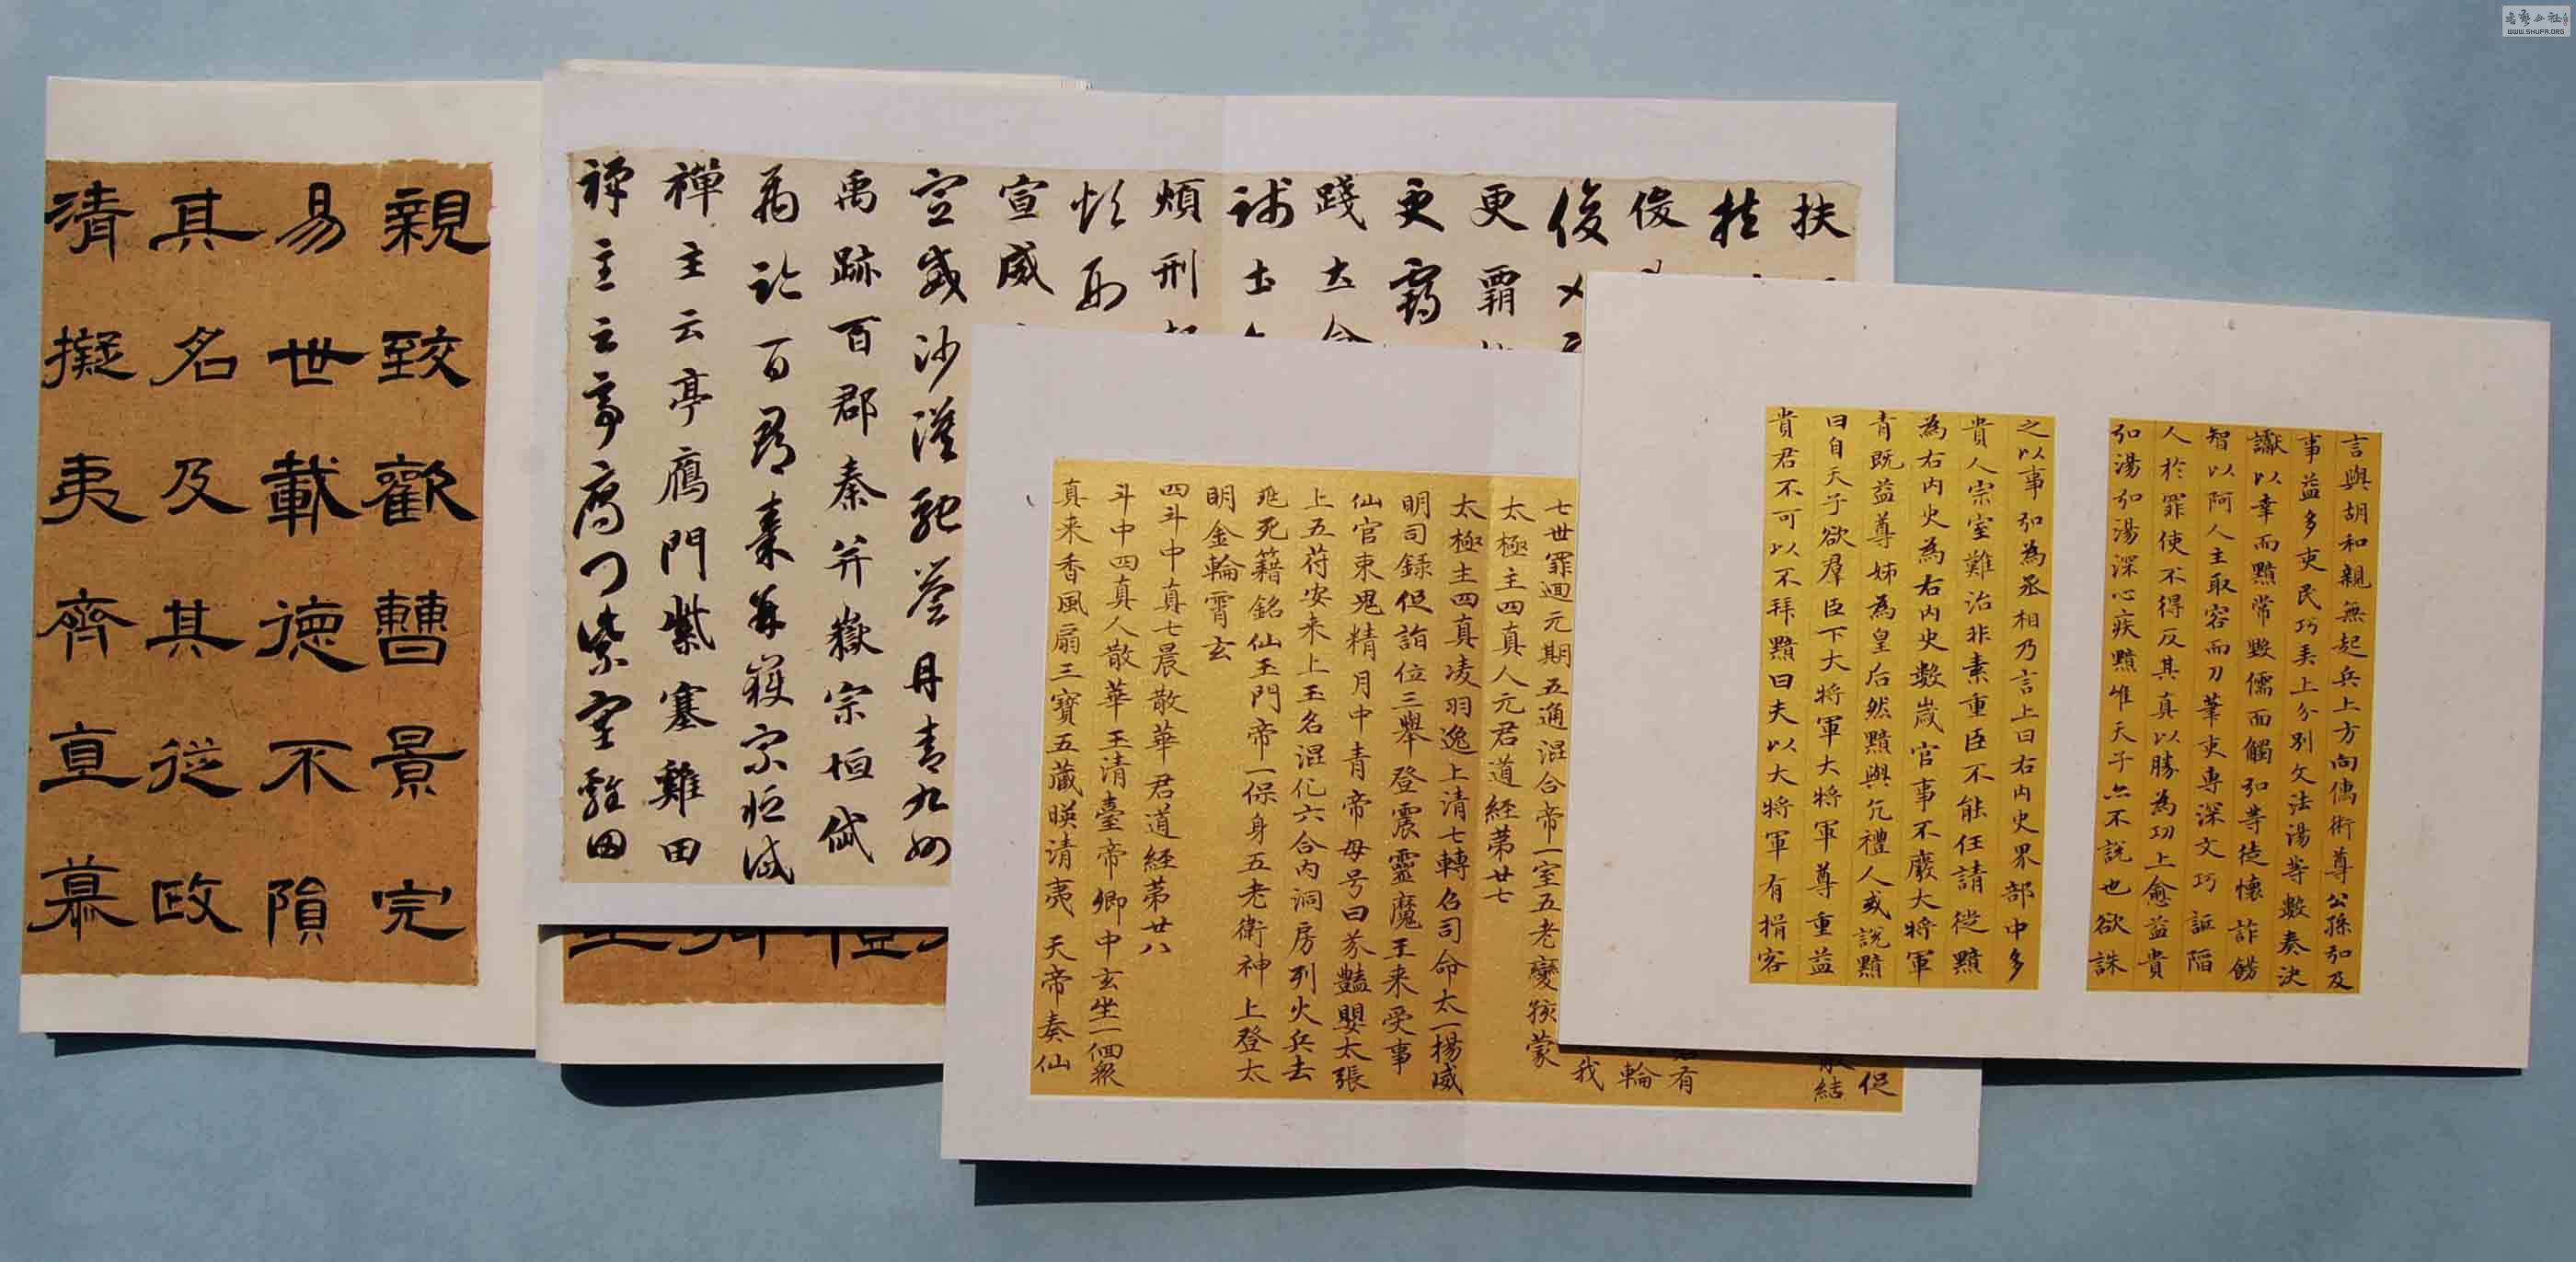 言與胡和親無起兵上方向儒術尊公孫弘及
事益多吏民巧弄上分別文法湯等數奏決
讞以幸而黯常毀儒面觸弘等徒懷詐飾
智以阿人主取容而刀筆吏專深文巧詆陷
人於罪使不得反其真以勝為功上愈益貴
弘湯弘湯深心疾黯唯天子亦不說也欲誅
之以事弘為丞相乃言上曰右內史界部中多
貴人宗室難治非素重臣不能任請徙黯
為右內史為右內史數歲官事不廢大將軍
青既益尊姊為皇后然黯與亢禮人或說黯
曰自天子欲羣臣下大將軍大將軍尊重益
貴君不可以不拜黯曰夫以大將軍有揖客
促
結
有
輪
我
七世罪迴元期五通混合帝一室五老變蒙
太極主四真人元君道經第廿七
太極主四真凌羽逸上清七轉召司命太一揚威
明司錄促詣位三舉登震靈魔王来受事
仙官束鬼精月中青帝母号曰芬豔嬰太張
上五苻安来上玉名混化六合內洞房列火兵去
死籍銘仙玉門帝一保身五老衛神上登太
明金輪霄玄
四斗中真七晨散華君道經第廿八
斗中四真人散華玉清臺帝卿中玄坐一個眾
真来香風扇三寶五藏暎清夷天帝奏仙
扶
扶
俊
俊乂
更霸
更霸
踐土會
踐土
煩刑起
煩刑
宣威
宣威沙漠馳譽丹青九州
禹跡百郡秦并嶽宗恒岱
禹跡百郡秦并嶽宗恒岱
禪主云亭鴈門紫塞雞田
禪主云亭鴈門紫塞雞田
親致歡曹景完
易世載德不隕
其名及其從政
清擬夷齊直慕
WWW.SHUFA.ORG